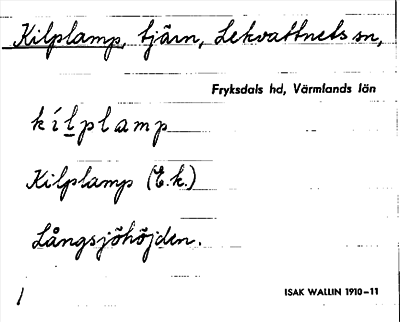 Kilplamp, tjärn, Lekvattnets sn,
Fryksdals hd, Värmlands län
kílplamp
Kilplamp (E.k.)
Långsjöhöjden.
1
ISAK WALLIN 1910–11